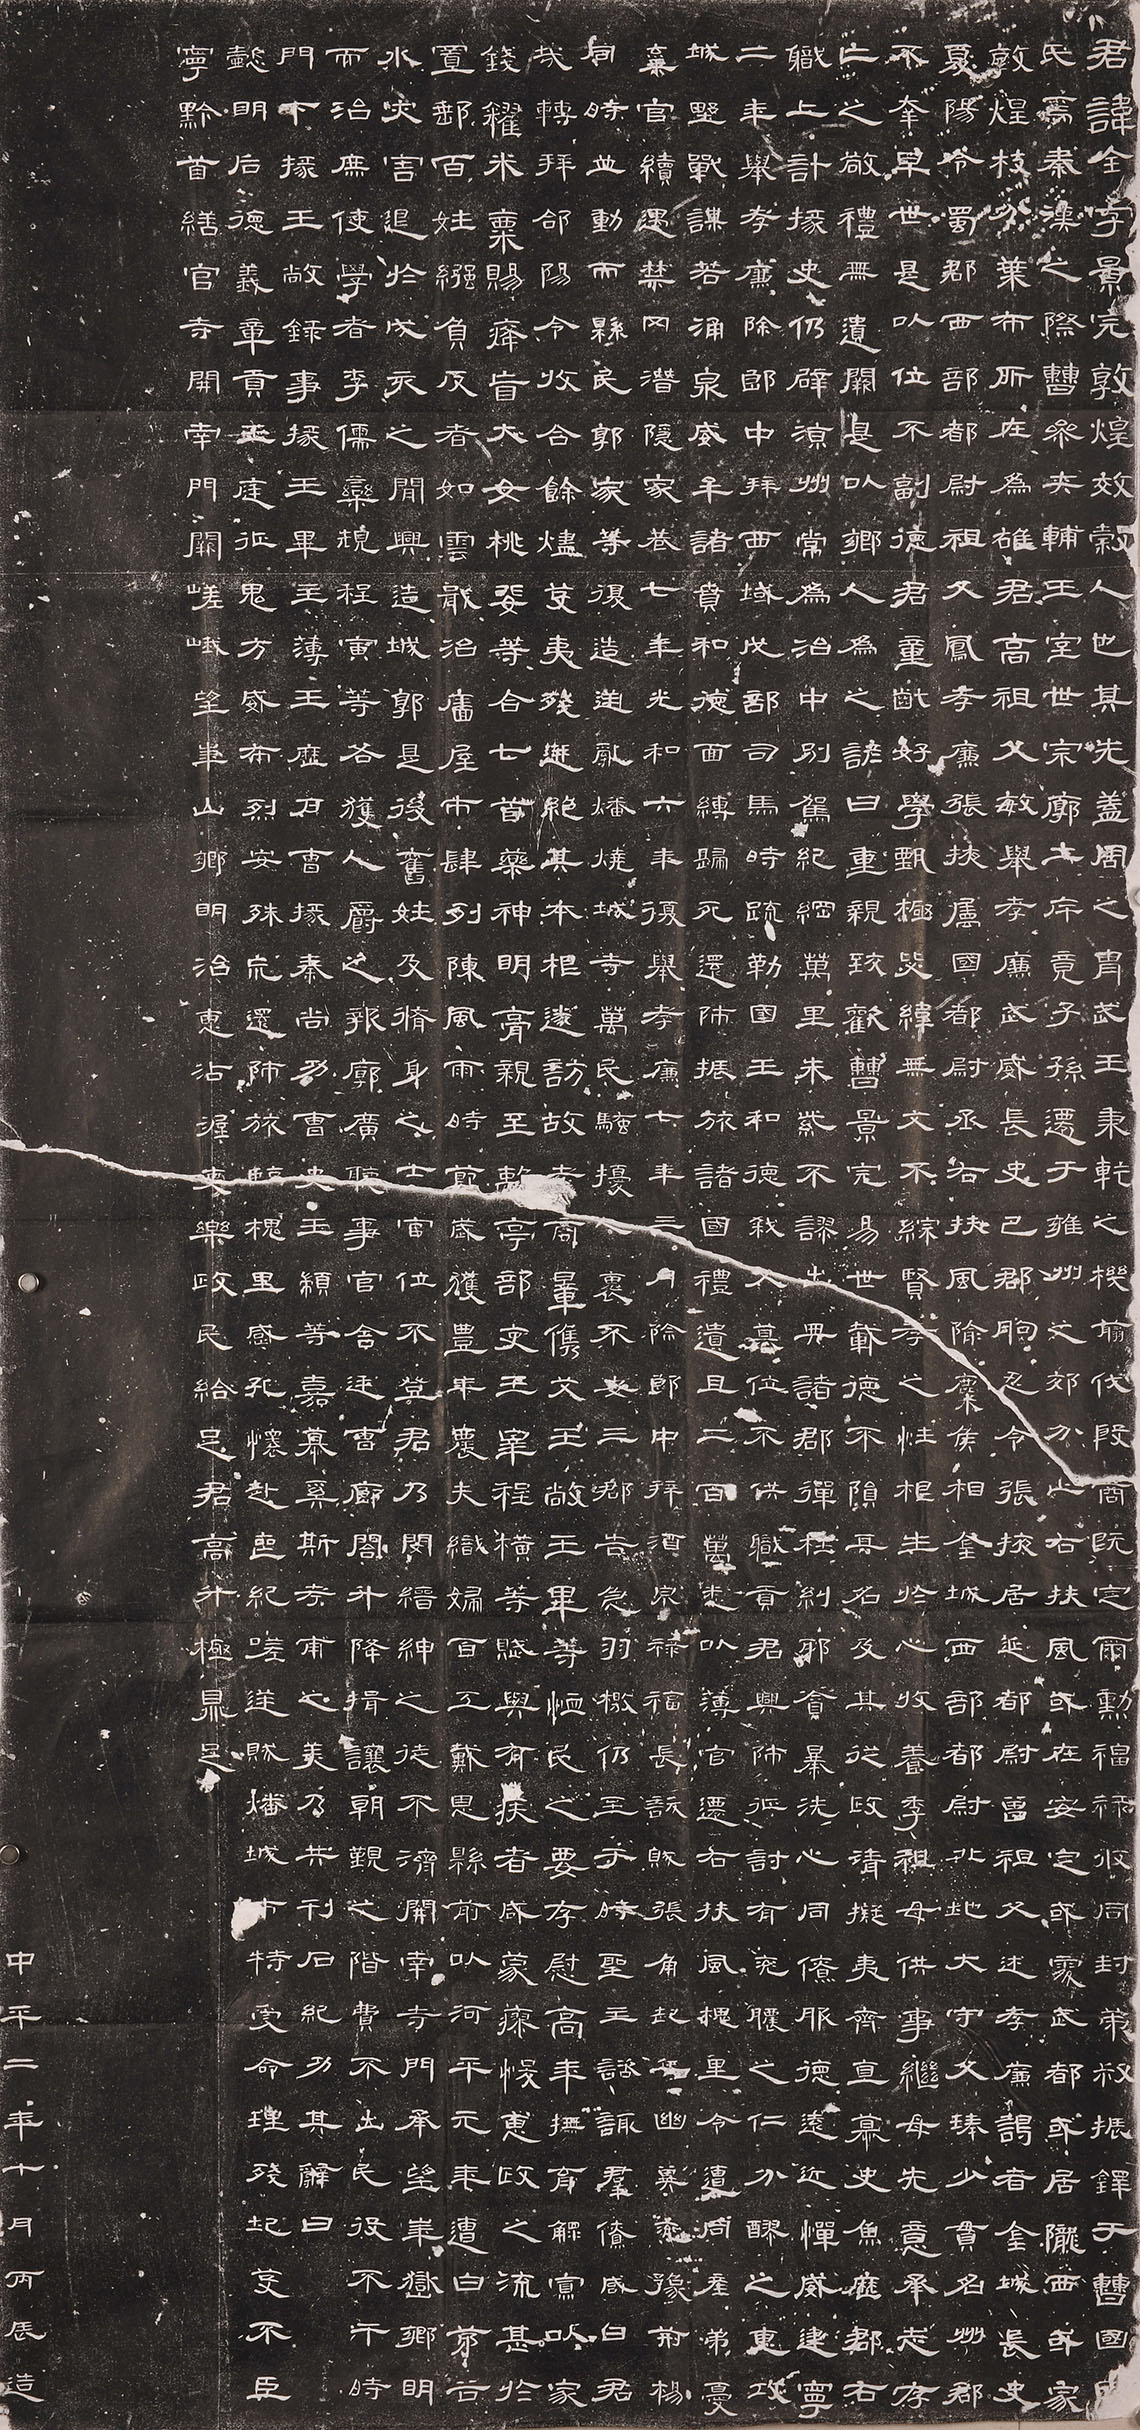 君諱全字景完敦煌效穀人也其先蓋周之胄武王秉乾之機翦伐殷商既定爾勳福祿攸同封弟叔振鐸于曹國
氏焉秦漢之際曹參夾輔王室世宗廓土斥竟子孫遷于雍州之郊分止右扶風或在安定或處武都或居隴西或家
敦煌枝分葉布所在為雄君高祖父敏舉孝廉武威長史巴郡朐忍令張掖居延都尉曾祖父述孝廉謁者金城長史
夏陽令蜀郡西部都尉祖父鳳孝廉張掖屬國都尉丞右扶風隃麋侯相金城西部都尉北地太守父琫少貫名州郡
不幸早世是以位不副德君童齔好學甄極毖緯無文不綜賢孝之性根生於心收養季祖母供事繼母先意承志存
亡之敬禮無遺闕是以鄉人為之諺曰重親致歡曹景完易世載德不隕其名及其從政清擬夷齊直慕史魚歷郡右
職上計掾史仍辟涼州常為治中別駕紀綱萬里朱紫不謬出典諸郡彈枉糾邪貪暴洗心同僚服德遠近憚威建寧
二年舉孝廉除郎中拜西域戊部司馬時疏勒國王和德弒父篡位不供職貢君興師征討有兖膿之仁分醪之惠攻
城野戰謀若涌泉威牟諸賁和德面縛歸死還師振旅諸國禮遺且二百萬悉以薄官遷右扶風槐里令遭同產弟憂
棄官續遇禁冈潛隱家巷七年光和六年復舉孝廉七年三月除郎中拜酒泉祿福長訞賊張角起兵幽冀兖豫荊楊
同時並動而縣民郭家等復造逆亂燔燒城寺萬民騷擾人裹不安三郡告急羽檄仍至于時聖主諮諏群僚咸曰君
哉轉拜郃陽令收合餘燼芟夷殘迸絕其本根遂訪故老商量儁艾王敞王畢等恤民之要存慰高年撫育鰥寡以家
錢糴米粟賜癃盲大女桃婓等合七首藥神明膏親至離亭部吏王宰程橫等賦與有疾者咸蒙瘳悛惠政之流甚於
置郵百姓繈負反者如雲戢治廧屋市肆列陳風雨時節歲獲豐年農夫織婦百工戴恩縣前以河平元年遭白茅谷
水災害退於戌亥之間興造城郭是後舊姓及脩身之士官位不登君乃閔縉紳之徒不濟開南寺門承望華嶽鄉明
而治庶使學者李儒欒規程寅等各獲人爵之報廓廣聽事官舍廷曹廊閣升降揖讓朝覲之階費不出民役不干時
門下掾王敞錄事掾王畢主薄王歷戶曹掾秦尚功曹史王顓等嘉慕奚斯考甫之美乃共刊石紀功其辭曰
懿明后德義章貢王庭征鬼方威布烈安殊荒還師旅臨槐里感孔懷赴喪紀嗟逆賊燔城市特受命理殘圮芟不臣
寧黔首繕官寺開南門闕嵯峨望華山鄉明治惠沾渥吏樂政民給足君高升極鼎足
中平二年十月丙辰造